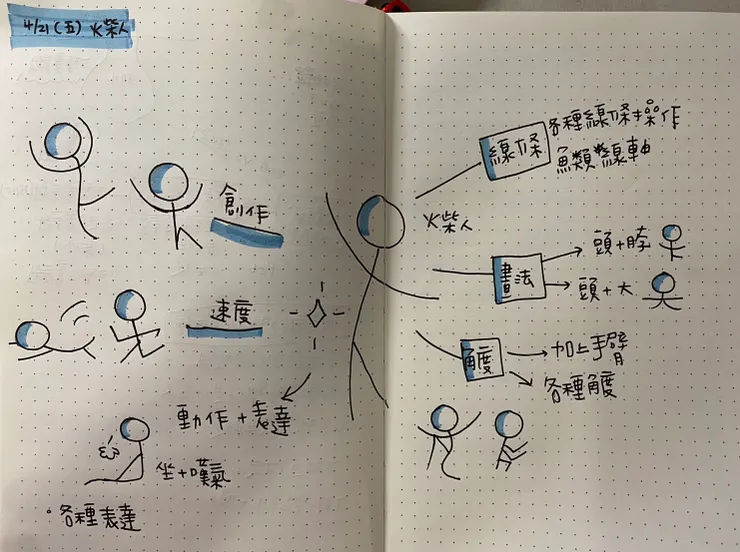 4/21(五) 火柴人
創作
速度
動作+表達
坐+嘆氣
各種表達
火柴人
線條
各種線條操作
魚類 線軸
畫法
頭+脖
頭+大
角度
加上手臂
各種角度